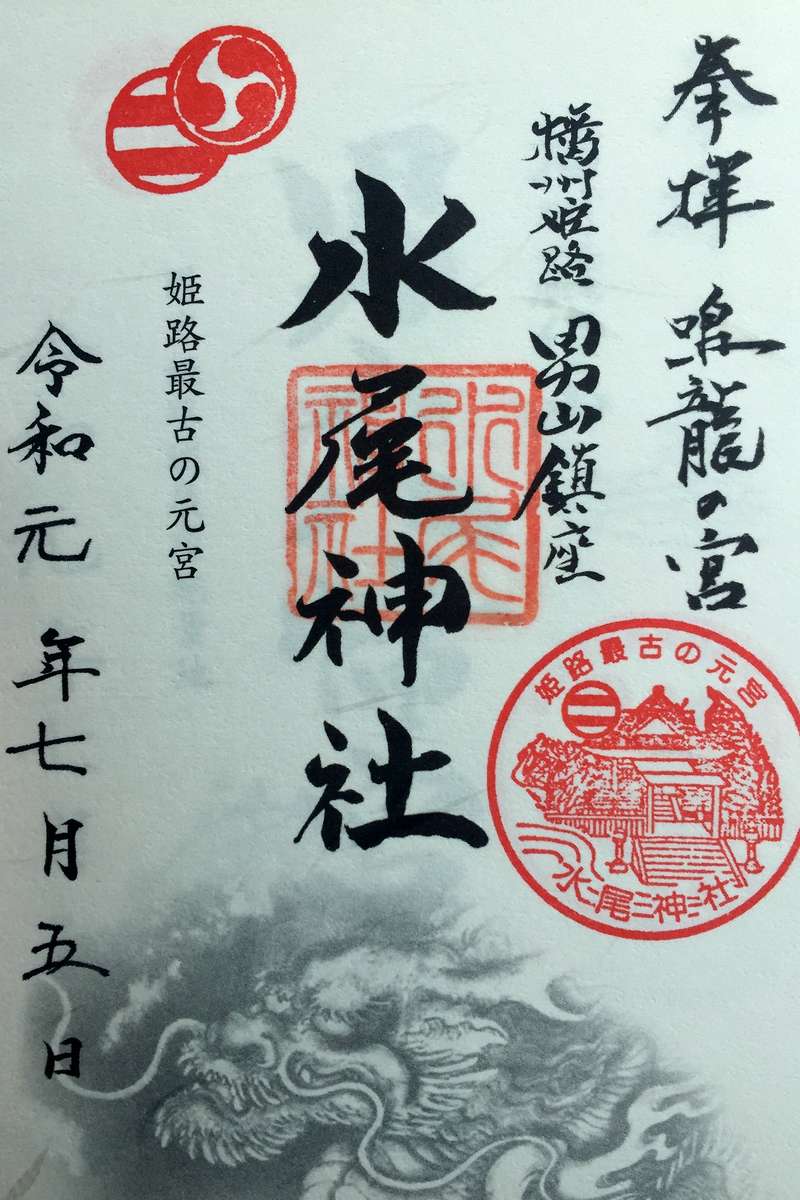 奉拝 鳴龍の宮
播州姫路 男山鎮座
水尾神社
水尾神社
姫路最古の元宮
令和元年七月五日
姫路最古の元宮
水尾神社